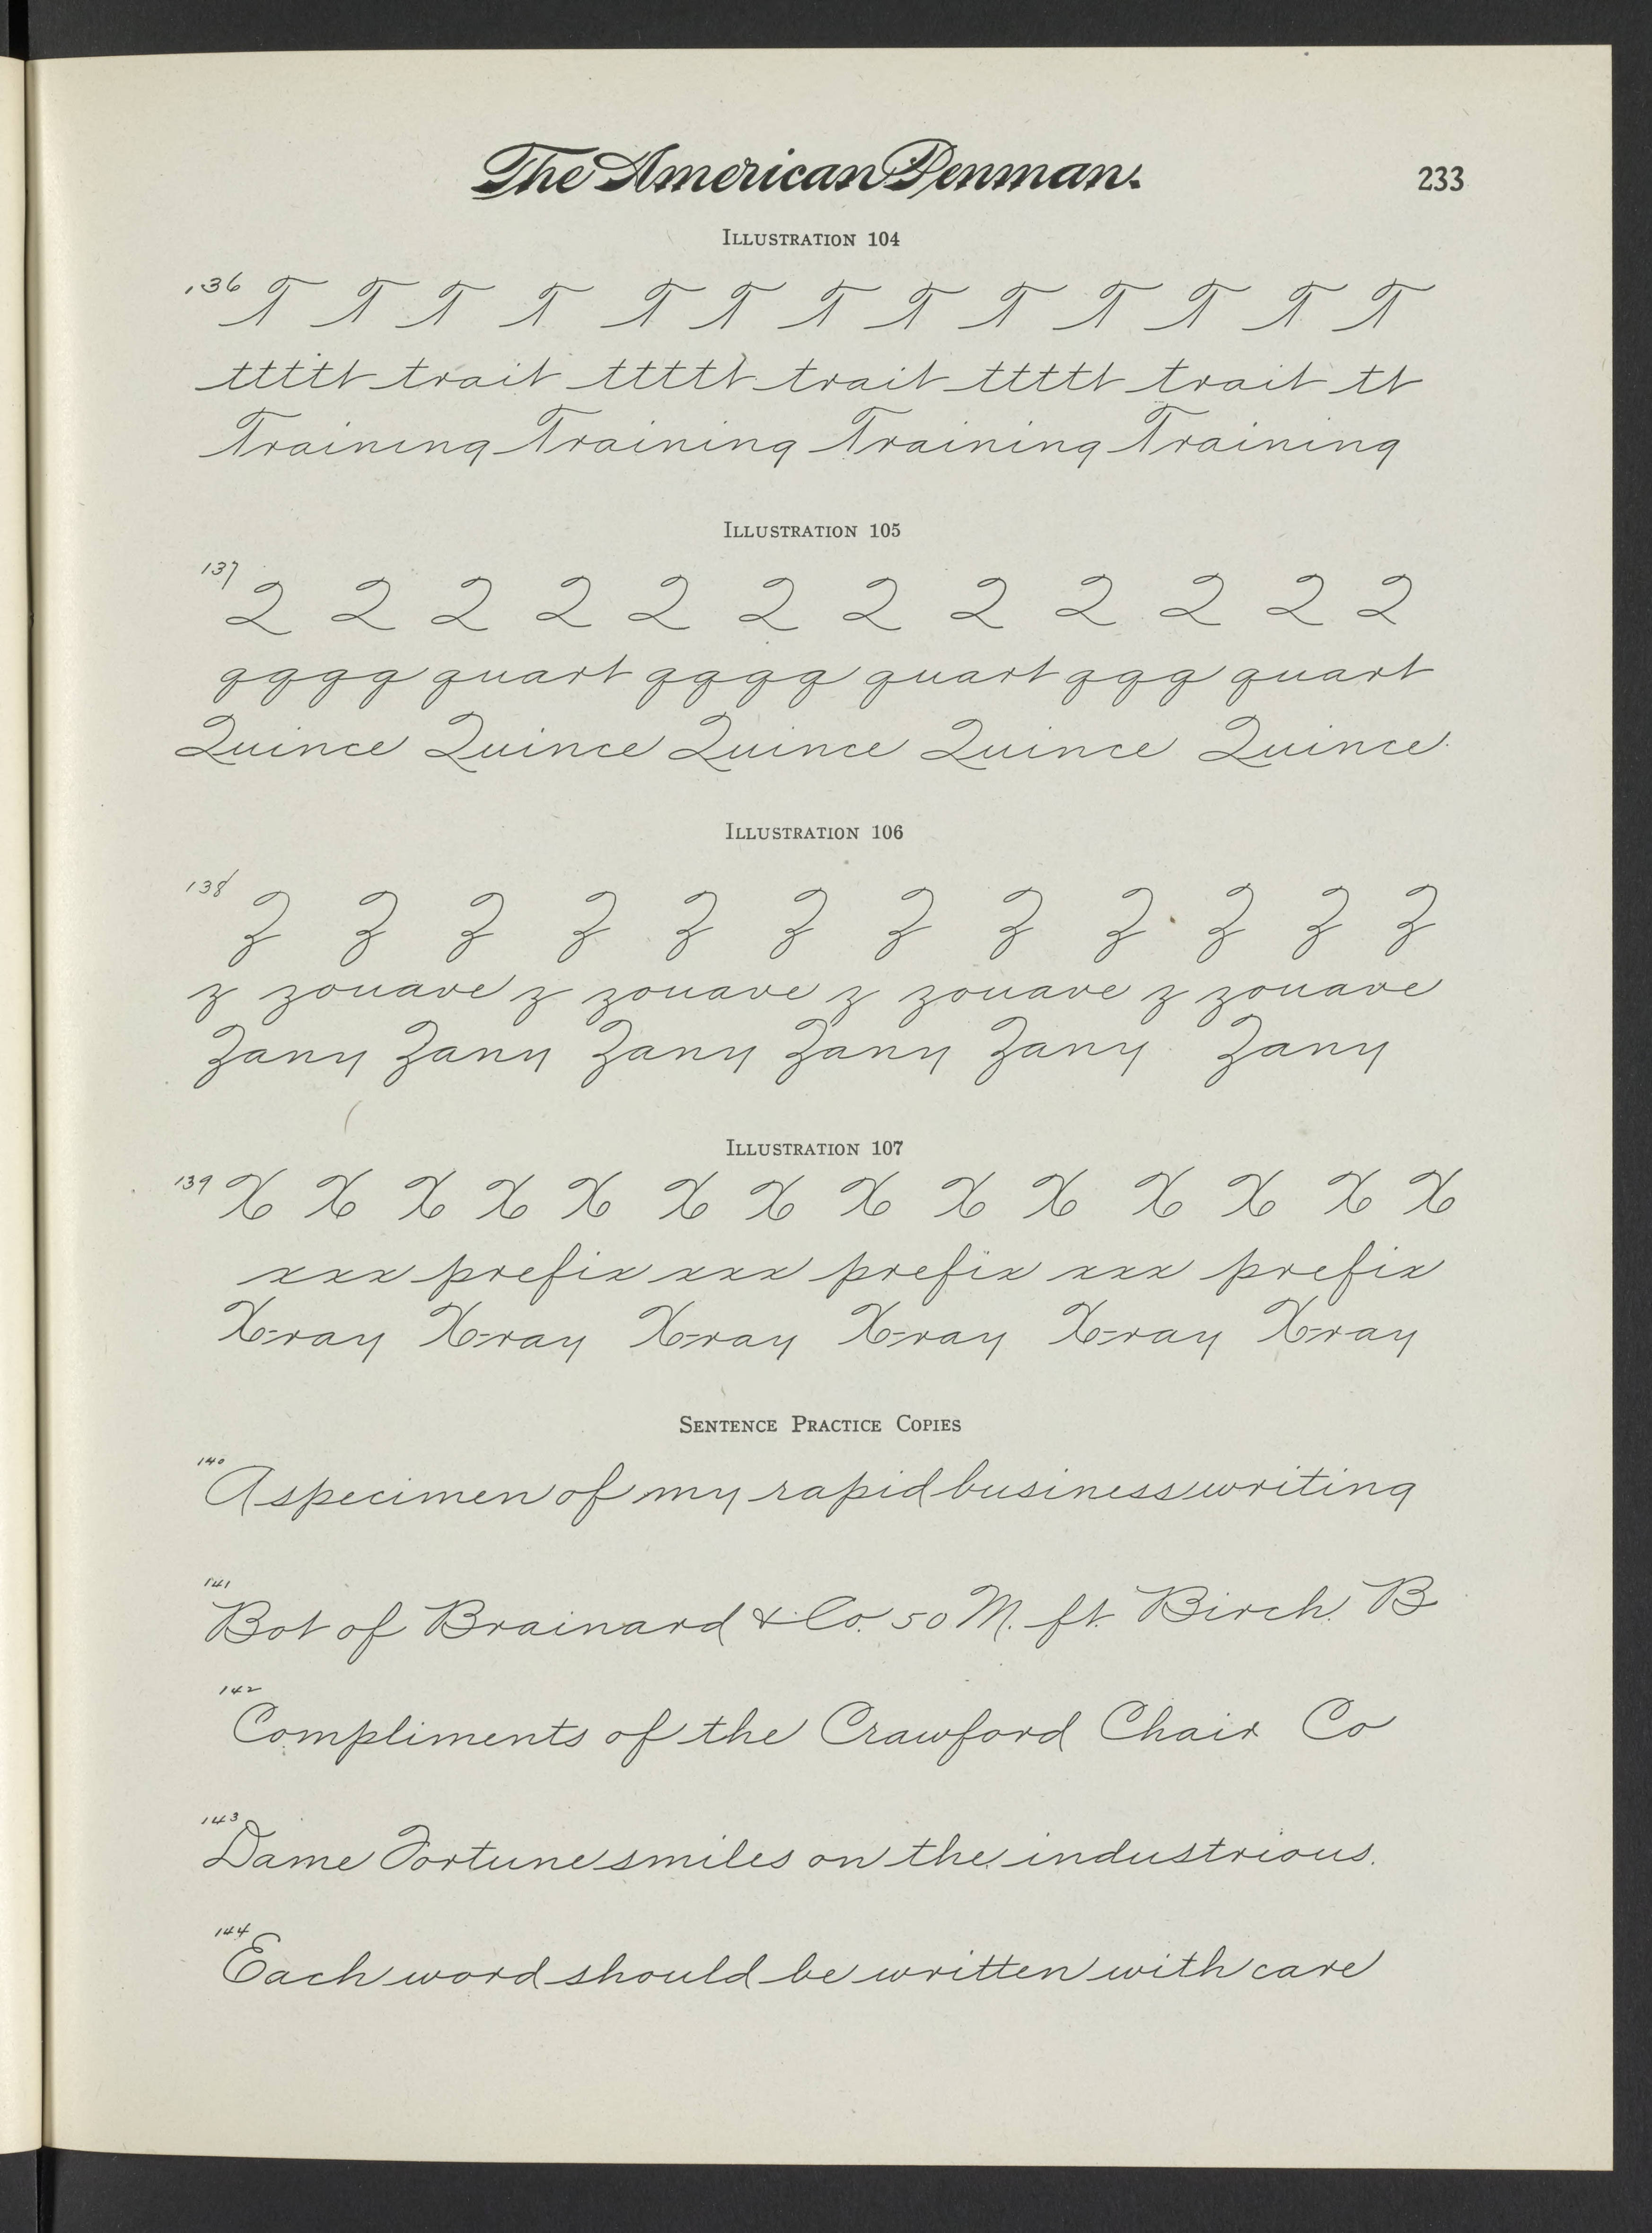 The American Penman.
233
ILLUSTRATION 104
136 T T T T T T T T T T T T T
ttttt trait ttttt trait ttttt trait tt
Training Training Training Training
ILLUSTRATION 105
137 Q Q Q Q Q Q Q Q Q Q Q Q
qqqq quart qqqq quart qqq quart
Quince Quince Quince Quince Quince
ILLUSTRATION 106
138 Z Z Z Z Z Z Z Z Z Z Z Z
z zouave z zouave z zouave z zouave
Zany Zany Zany Zany Zany Zany
ILLUSTRATION 107
139 X X X X X X X X X X X X X X
xxx prefix xxx prefix xxx prefix
X-ray X-ray X-ray X-ray X-ray X-ray
SENTENCE PRACTICE COPIES
140
A specimen of my rapid business writing
141
Bot of Brainard & Co. 50 M. ft. Birch. B
142
Compliments of the Crawford Chair Co
143
Dame Fortune smiles on the industrious.
144
Each word should be written with care